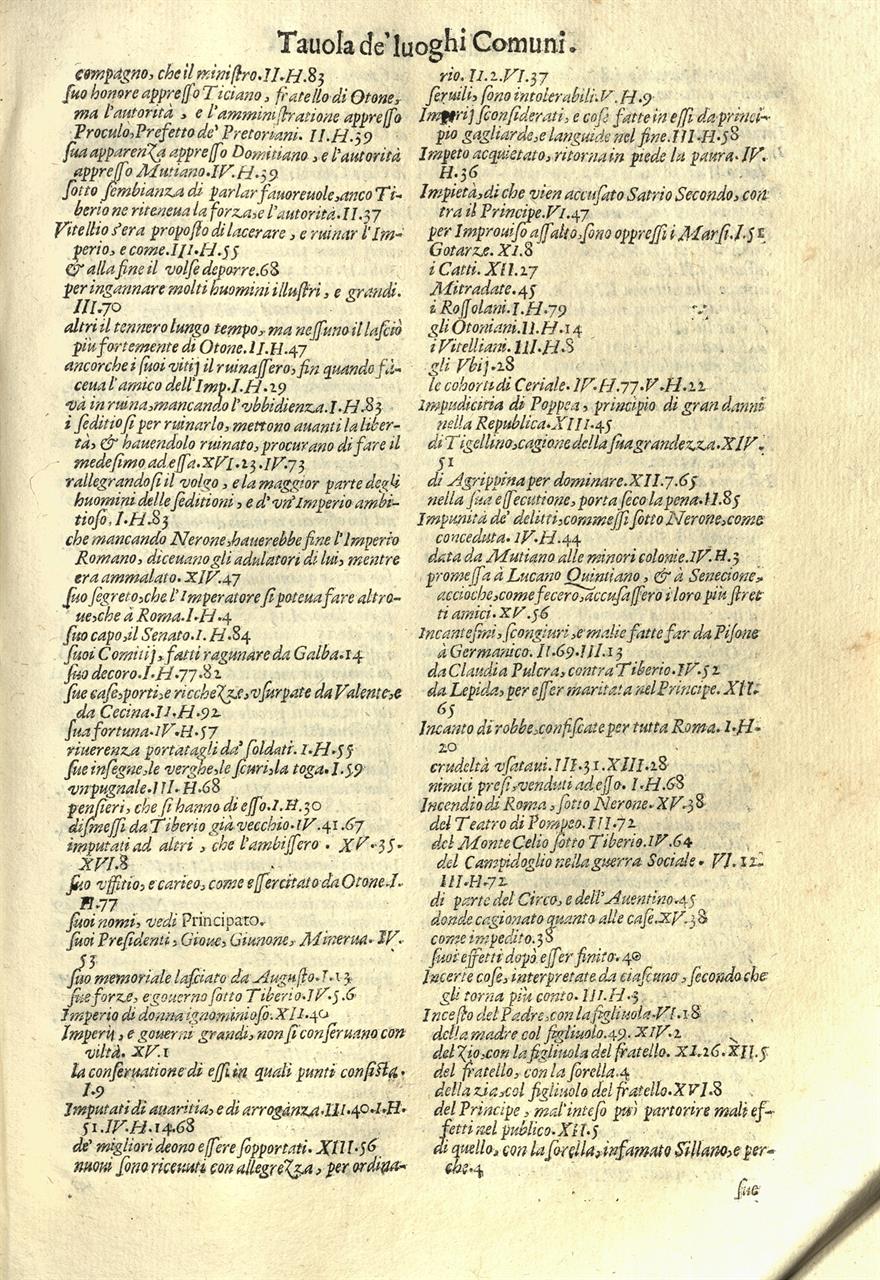 Tauola de' luoghi Comuni.
compagno, che il ministro. II. H. 83
suo honore appresso Ticiano, fratello di Otone,
ma l'autorità, e l'amministratione appresso
Proculo, Prefetto de' Pretoriani. II. H. 39
sua apparenza appresso Domitiano, e l'autorità
appresso Mutiano. IV. H. 39
sotto sembianza di parlar fauoreuole, anco Ti-
berio ne riteneua la forza, e l'autorità. II. 37
Vitellio s'era proposto di lacerare, e ruinar l'Im-
perio, e come. III. H. 55
& alla fine il volse deporre. 68
per ingannare molti huomini illustri, e grandi.
III. 70
altri il tennero lungo tempo, ma nessuno il lasciò
più fortemente di Otone. II. H. 47
ancorche i suoi vitij il ruinassero, fin quando fa-
ceua l'amico dell'Imp. I. H. 29
và in ruina, mancando l'vbbidienza. I. H. 83
i seditiosi per ruinarlo, mettono auanti la liber-
tà, & hauendolo ruinato, procurano di fare il
medesimo ad essa. XVI. 23. IV. 73
rallegrandosi il volgo, e la maggior parte degli
huomini delle seditioni, e d'vn'Imperio ambi-
tioso. I. H. 83
che mancando Nerone, hauerebbe fine l'Imperio
Romano, diceuano gli adulatori di lui, mentre
era ammalato. XIV. 47
suo segreto, che l'Imperatore si poteua fare altro-
ue, che à Roma. I. H. 4
suo capo, il Senato. I. H. 84
suoi Comitij, fatti ragunare da Galba. 14
suo decoro. I. H. 77. 82
sue case, porti, e ricchezze, vsurpate da Valente, e
da Cecina. II. H. 92
sua fortuna. IV. H. 57
riuerenza portatagli da' soldati. I. H. 55
sue insegne, le verghe, le scuri, la toga. I. 59
vn pugnale. III. H. 68
pensieri, che si hanno di esso. I. H. 30
dismessi da Tiberio già vecchio. IV. 41. 67
imputati ad altri, che l'ambissero. XV. 35.
XVI. 8
suo vffitio, e carico, come essercitato da Otone. I.
H. 77
suoi nomi, vedi Principato.
suoi Presidenti, Gioue, Giunone, Minerua. IV.
53
suo memoriale lasciato da Augusto. I. 13
sue forze, e gouerno sotto Tiberio. IV. 5. 6
Imperio di donna ignominioso. XII. 40
Imperij, e gouerni grandi, non si conseruano con
viltà. XV. 1
la conseruatione di essi in quali punti consista.
I. 9
Imputati di auaritia, e di arroganza. III. 40. I. H.
51. IV. H. 14. 68
de' migliori deono essere sopportati. XIII. 56
nuoui sono riceuuti con allegrezza, per ordina-
rio. II. 2. VI. 37
seruili, sono intolerabili. V. H. 9
Imperij sconsiderati, e cose fatte in essi da princi-
pio gagliarde, e languide nel fine. III. H. 58
Impeto acquietato, ritorna in piede la paura. IV.
H. 36
Impietà, di che vien accusato Satrio Secondo, con
tra il Principe. VI. 47
per Improuiso assalto, sono oppressi i Marsi. I. 51
Gotarze. XI. 8
i Catti. XII. 27
Mitradate. 45
i Rossolani. I. H. 79
gli Otoniani. II. H. 14
i Vitelliani. III. H. 8
gli Vbij. 28
le cohorti di Ceriale. IV. H. 77. V. H. 22
Impudicitia di Poppea, principio di gran danni
nella Republica. XIII. 45
di Tigellino, cagione della sua grandezza. XIV.
51
di Agrippina per dominare. XII. 7. 65
nella sua essecutione, porta seco la pena. II. 85
Impunità de' delitti, commessi sotto Nerone, come
conceduta. IV. H. 44
data da Mutiano alle minori colonie. IV. H. 3
promessa à Lucano Quintiano, & à Senecione,
accioche, come fecero, accusassero i loro più stret
ti amici. XV. 56
Incantesini, scongiuri, e malie fatte far da Pisone
à Germanico. II. 69. III. 13
da Claudia Pulcra, contra Tiberio. IV. 52
da Lepida, per esser maritata nel Principe. XII.
65
Incanto di robbe, confiscate per tutta Roma. I. H.
20
crudeltà vsataui. III. 31. XIII. 28
nimici presi, venduti ad esso. I. H. 68
Incendio di Roma, sotto Nerone. XV. 38
del Teatro di Pompeo. III. 72
del Monte Celio sotto Tiberio. IV. 64
del Campidoglio nella guerra Sociale. VI. 12.
III. H. 72
di parte del Circo, e dell'Auentino. 45
donde cagionato quanto alle case. XV. 38
come impedito. 38
suoi effetti dopò esser finito. 40
Incerte cose, interpretate da ciascuno, secondo che
gli torna più conto. III. H. 3
Incesto del Padre, con la figliuola. VI. 18
della madre col figliuolo. 49. XIV. 2
del zio, con la figliuola del fratello. XI. 26. XII. 5
del fratello, con la sorella. 4
della zia, col figliuolo del fratello. XVI. 8
del Principe, mal'inteso può partorire mali ef-
fetti nel publico. XII. 5
di quello, con la sorella, infamato Sillano, e per-
che. 4
sue